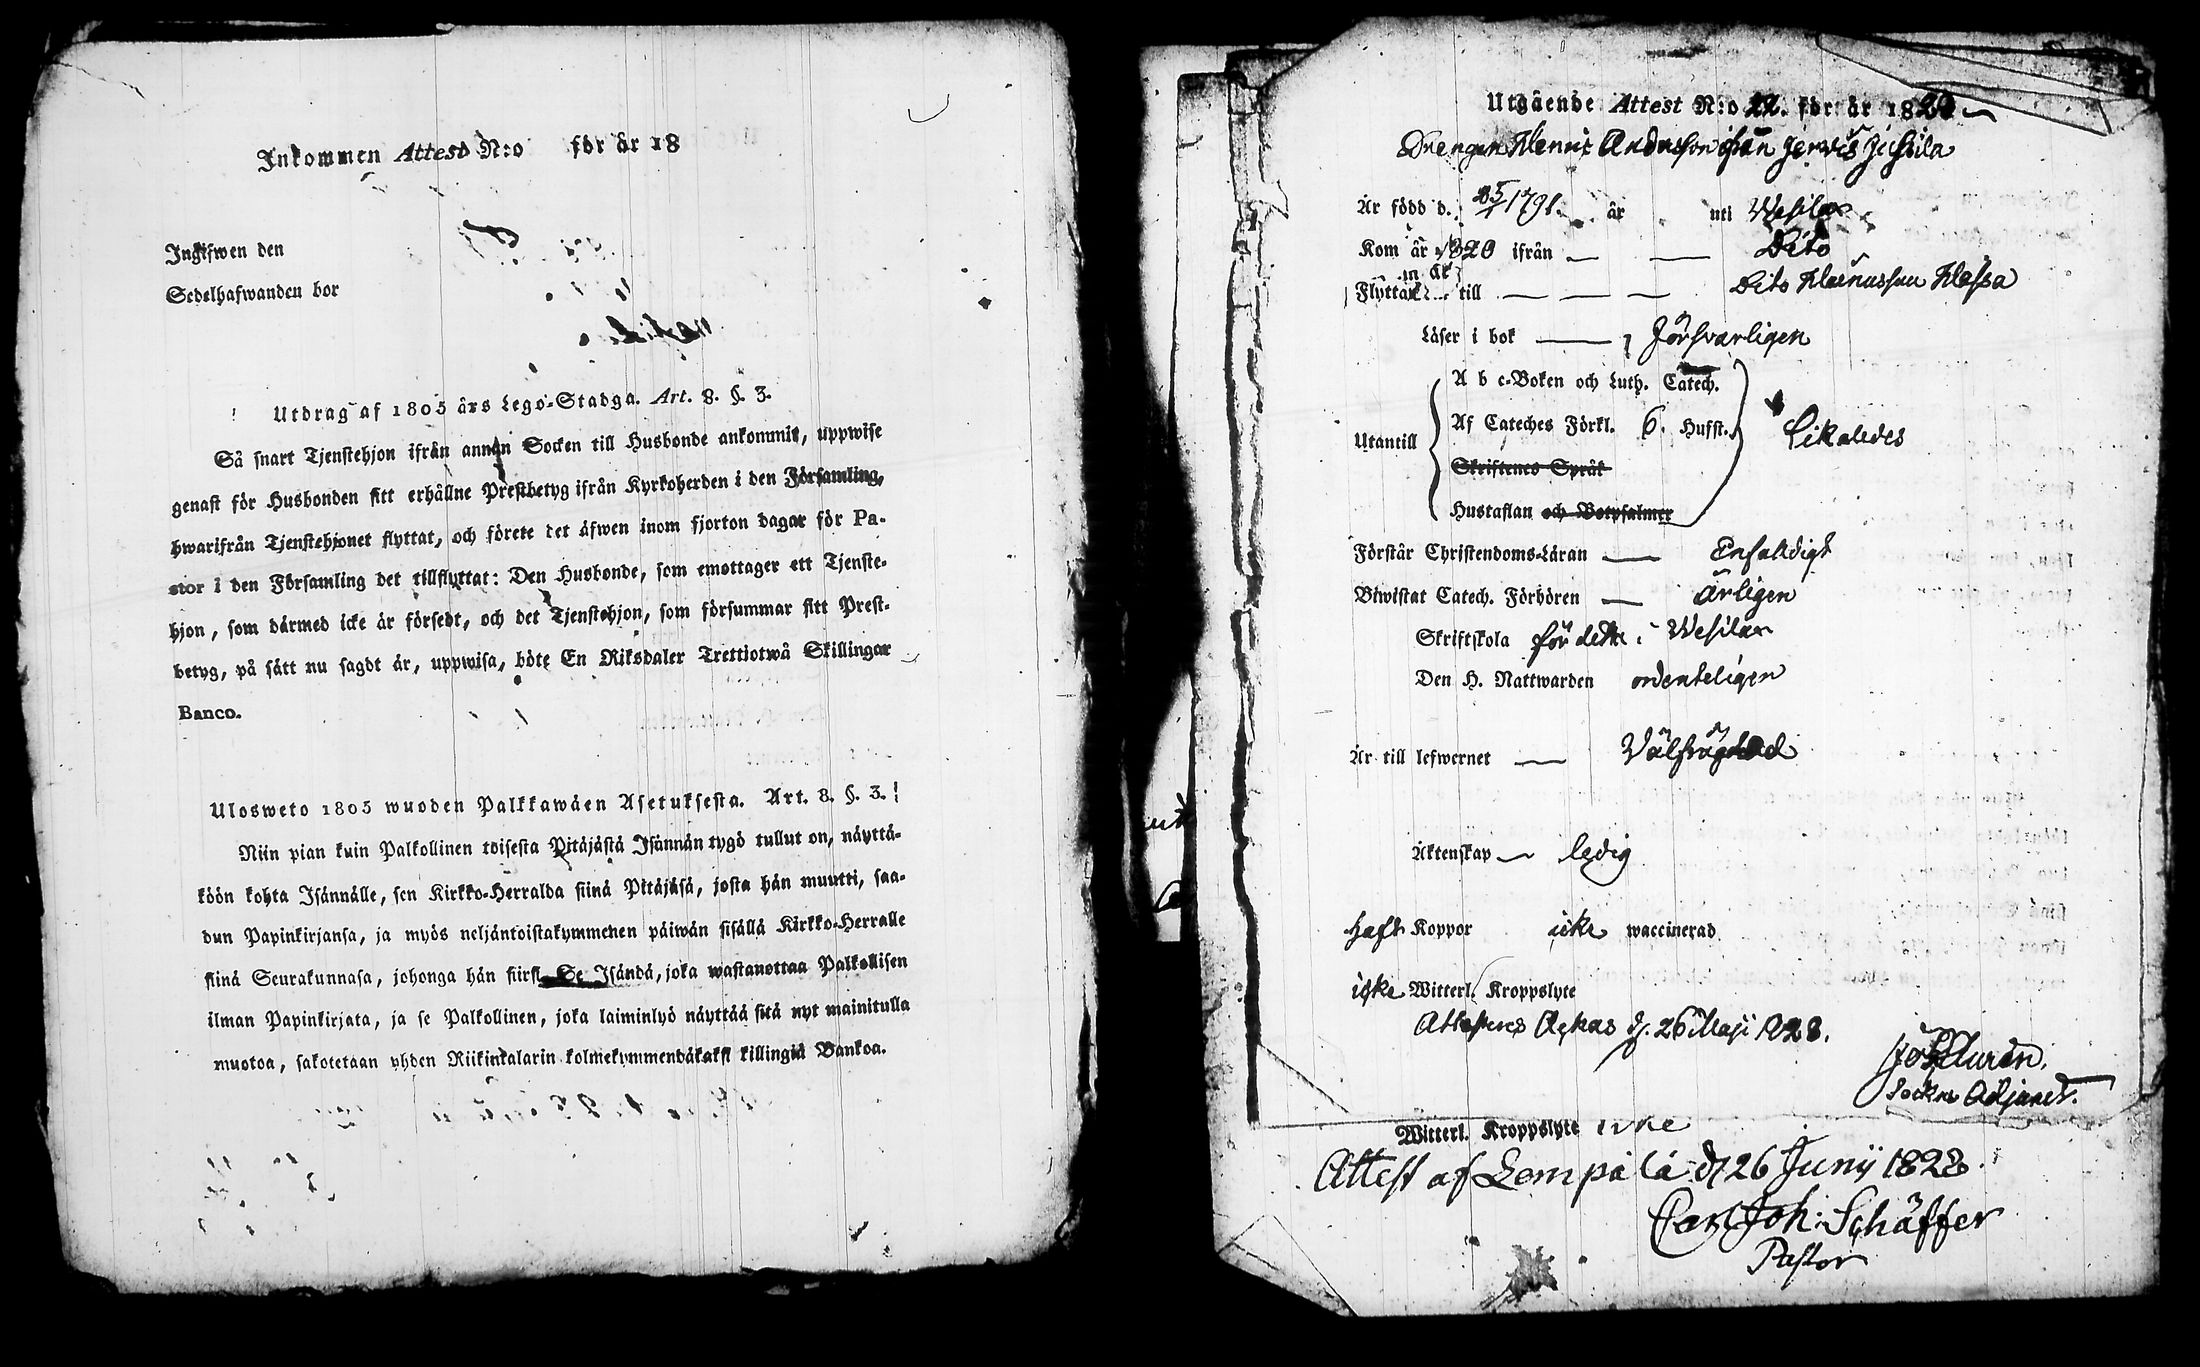 Inkommen Attest N:o för år 18
Ingifwen den
Sedelhafwanden bor
Utdrag af 1805 års Lego-Stadga. Art. 8. §. 3.
Så snart Tjenstehjon ifrån annan Socken till Husbonde ankommit, uppwise
genast för Husbonden sitt erhållne Prestbetyg ifrån Kyrkoherden i den Församling,
hwarifrån Tjenstehjonet flyttat, och förete det äfwen inom fjorton dagar för Pa-
stor i den Församling det tillflyttat: Den Husbonde, som emottager ett Tjenste-
hjon, som därmed icke är försedt, och det Tjenstehjon, som försummar sitt Prest-
betyg, på sätt nu sagdt är, uppwisa, böte En Riksdaler Trettiotwå Skillingar
Banco.
Ulosweto 1805 wuoden Palkkawäen Asetuksesta. Art. 8. §. 3.
Niin pian kuin Palkollinen toisesta Pitäjästä Isännän tygö tullut on, näyttä-
köön kohta Isännälle, sen Kirkko-Herralda siinä Pitäjäsä, josta hän muutti, saa-
dun Papinkirjansa, ja myös neljäntoistakymmenen päiwän sisällä Kirkko-Herralle
siinä Seurakunnasa, johonga hän siirsi. Se Isändä, joka wastanottaa Palkollisen
ilman Papinkirjata, ja se Palkollinen, joka laiminlyö näyttää sitä nyt mainitulla
muotoa, sakotetaan yhden Riikintalarin kolmekymmendäkaksi killingiä Bankoa.
Utgående Attest N:o 22. för år 182
Drengen Andersson ifrån Jussila
Är född d. 1791 år uti Wesilax
Kom år 1820 ifrån Dito
Flyttar till Dito
Läser i bok försvarligen
Utantill
A b c-Boken och Luth. Catech.
Af Cateches Förkl. 6. Hufst. likaledes
Skriftenes Språk
Hustaflan och Botpsalmer
Förstår Christendoms-Läran Enfaldigt
Biwistat Catech. Förhören årligen
Skriftskola för detta i Wesilax
Den H. Nattwarden ordenteligen
Är till lefwernet Välfrägdad
Äktenskap ledig
haft Koppor icke waccinerad
icke Witterl. Kroppslyte
Attesteres d. 26 Maji 1828.
Sockne Adjunct.
Witterl. Kroppslyte icke
Attest af Lempälä d 26 Junij 1828.
Carl Joh: Schäffer
Pastor